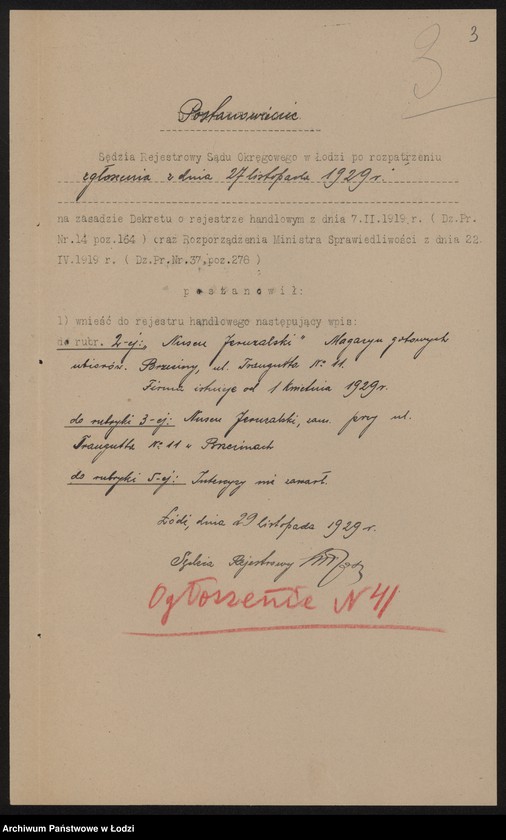 3
3
Postanowienie
Sędzia Rejestrowy Sądu Okręgowego w Łodzi po rozpatrzeniu
zgłoszenia z dnia 27 listopada 1929 r.
na zasadzie Dekretu o rejestrze handlowym z dnia 7.II.1919 r. ( Dz.Pr.
Nr.14 poz.164 ) oraz Rozporządzenia Ministra Sprawiedliwości z dnia 22.
IV.1919 r. ( Dz.Pr.Nr.37,poz.278 )
p o s t a n o w i ł:
1) wnieść do rejestru handlowego następujący wpis:
do rubr. 2-ej: „Nusen Jeruzalski" Magazyn gotowych
ubiorów. Brzeziny, ul. Traugutta № 11.
Firma istnieje od 1 kwietnia 1929 r.
do rubryki 3-ej: Nusen Jeruzalski, zam. przy ul.
Traugutta № 11 w Brzezinach
do rubryki 5-ej: Intercyzy nie zawarł.
Łódź, dnia 29 listopada 1929 r.
Sędzia Rejestrowy
Ogłoszenie N 41
Archiwum Państwowe w Łodzi